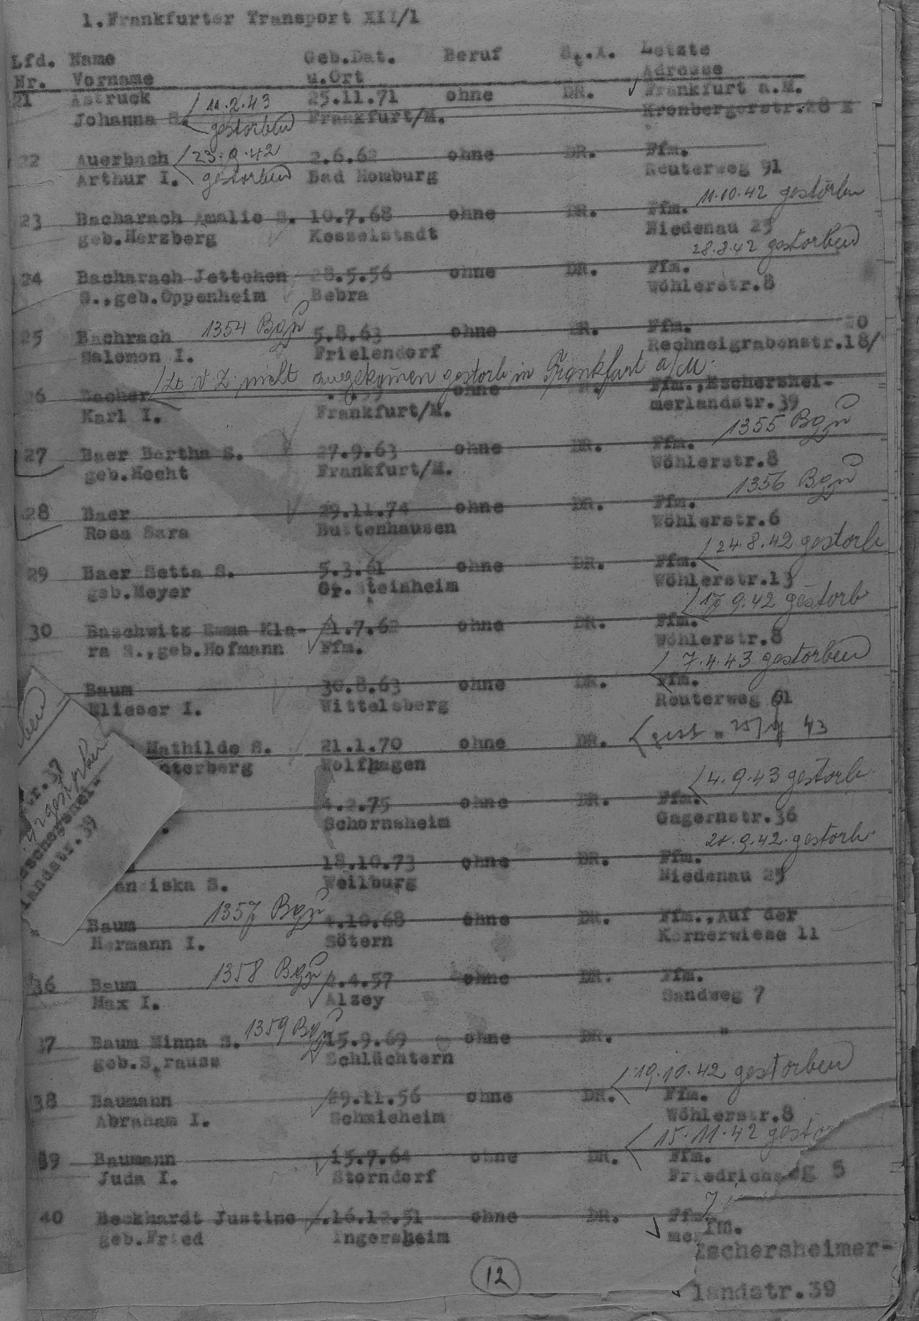 1.Frankfurter Transport XII/1
Lfd. Name Geb.Dat. Beruf St.A. Letzte
Nr. Vorname u.Ort Adresse
21 Astruck 11.2.43 25.11.71 ohne DR. Frankfurt a.M.
Johanna S. gestorben Frankfurt/M. Kronbergerstr.28 I
22 Auerbach 23.9.42 2.6.62 ohne DR. Ffm.
Arthur I. gestorben Bad Homburg Reuterweg 91
11.10.42 gestorben
23 Bacharach Amalie S. 10.7.68 ohne DR. Ffm.
geb.Herzberg Kesselstadt Niedenau 25
28.8.42 gestorben
24 Bacharach Jettchen 28.5.56 ohne DR. Ffm.
S.,geb.Oppenheim Bebra Wöhlerstr.8
25 Bachrach 1354 Bgzü 5.8.63 ohne DR. Ffm. 20
Salomon I. Frielendorf Rechneigrabenstr.18/
nicht angekommen gestorb in Frankfurt a/M.
26 Bacher ohne Ffm.,Eschershei-
Karl I. Frankfurt/M. merlandstr.39
1355 Bgzü
27 Baer Bertha S. 27.9.63 ohne DR. Ffm.
geb.Hecht Frankfurt/M. Wöhlerstr.8
1356 Bgzü
28 Baer 29.11.74 ohne DR. Ffm.
Rosa Sara Buttenhausen Wöhlerstr.6
24.8.42 gestorb
29 Baer Setta S. 5.3.61 ohne DR. Ffm.
geb.Meyer Gr.Steinheim Wöhlerstr.13
17.9.42 gestorb
30 Baschwitz Emma Kla- 1.7.62 ohne DR. Ffm.
ra S.,geb.Hofmann Ffm. Wöhlerstr.8
7.4.43 gestorben
Baum 30.8.63 ohne DR. Ffm.
Elieser I. Wittelsberg Reuterweg 61
Mathilde S. 21.1.70 ohne DR. gest. 43
terberg Wolfhagen
4.9.43 gestorb
4.2.75 ohne DR. Ffm.
Schornsheim Gagernstr.36
9.42 gestorb
18.10.73 ohne DR. Ffm.
ziska S. Weilburg Niedenau 25
Baum 1357 Bgzü 4.10.68 ohne DR. Ffm.,Auf der
Hermann I. Sötern Körnerwiese 11
36 Baum 1358 Bgzü 4.57 ohne DR. Ffm.
Max I. Alzey Sandweg 7
37 Baum Minna S. 1359 Bgzü 15.9.69 ohne DR. "
geb.Strauss Schlüchtern
19.10.42 gestorben
38 Baumann 29.11.56 ohne DR. Ffm.
Abraham I. Schmieheim Wöhlerstr.8
15.11.42 gesto
39 Baumann 15.7.64 ohne DR. Ffm.
Juda I. Storndorf Friedrichs eg 5
40 Beckhardt Justine 16.12.51 ohne DR. Ffm.
geb.Fried Ingersheim me
fm.
Eschersheimer-
landstr.39
12
tr.37
gestorben
landstr.39